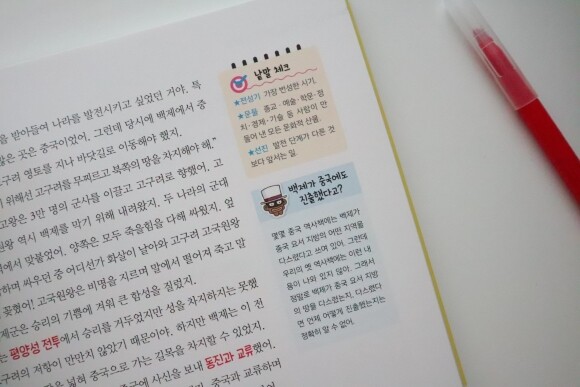 을 받아들여 나라를 발전시키고 싶었던 거야. 특
많은 곳은 중국이었어. 그런데 당시에 백제에서 중
구려 영토를 지나 바닷길로 이동해야 했지.
위해선 고구려를 무찌르고 북쪽의 땅을 차지해야 해.”
고왕은 3만 명의 군사를 이끌고 고구려로 향했어. 고
원왕 역시 백제를 막기 위해 내려왔지. 두 나라의 군대
에서 맞붙었어. 양쪽은 모두 죽을힘을 다해 싸웠지. 엎
하며 싸우던 중 어디선가 화살이 날아와 고구려 고국원왕
꽂혔어! 고국원왕은 비명을 지르며 말에서 떨어져 죽고 말
제군은 승리의 기쁨에 겨워 큰 함성을 질렀지.
는 평양성 전투에서 승리를 거두었지만 성을 차지하지는 못했
구려의 저항이 만만치 않았기 때문이야. 하지만 백제는 이 전
땅을 넓혀 중국으로 가는 길목을 차지할 수 있었지.
중국에 사신을 보내 동진과 교류했어.
중국과 교류하며
낱말 체크
★전성기 가장 번성한 시기.
★문물 종교·예술·학문·정
치·경제·기술 등 사람이 만
들어 낸 모든 문화적 산물.
★선진 발전 단계가 다른 것
보다 앞서는 일.
백제가 중국에도
진출했다고?
몇몇 중국 역사책에는 백제가
중국 요서 지방의 어떤 지역을
다스렸다고 쓰여 있어. 그런데
우리의 옛 역사책에는 이런 내
용이 나와 있지 않아. 그래서
정말로 백제가 중국 요서 지방
의 땅을 다스렸는지, 다스렸다
면 언제 어떻게 진출했는지는
정확히 알 수 없어.